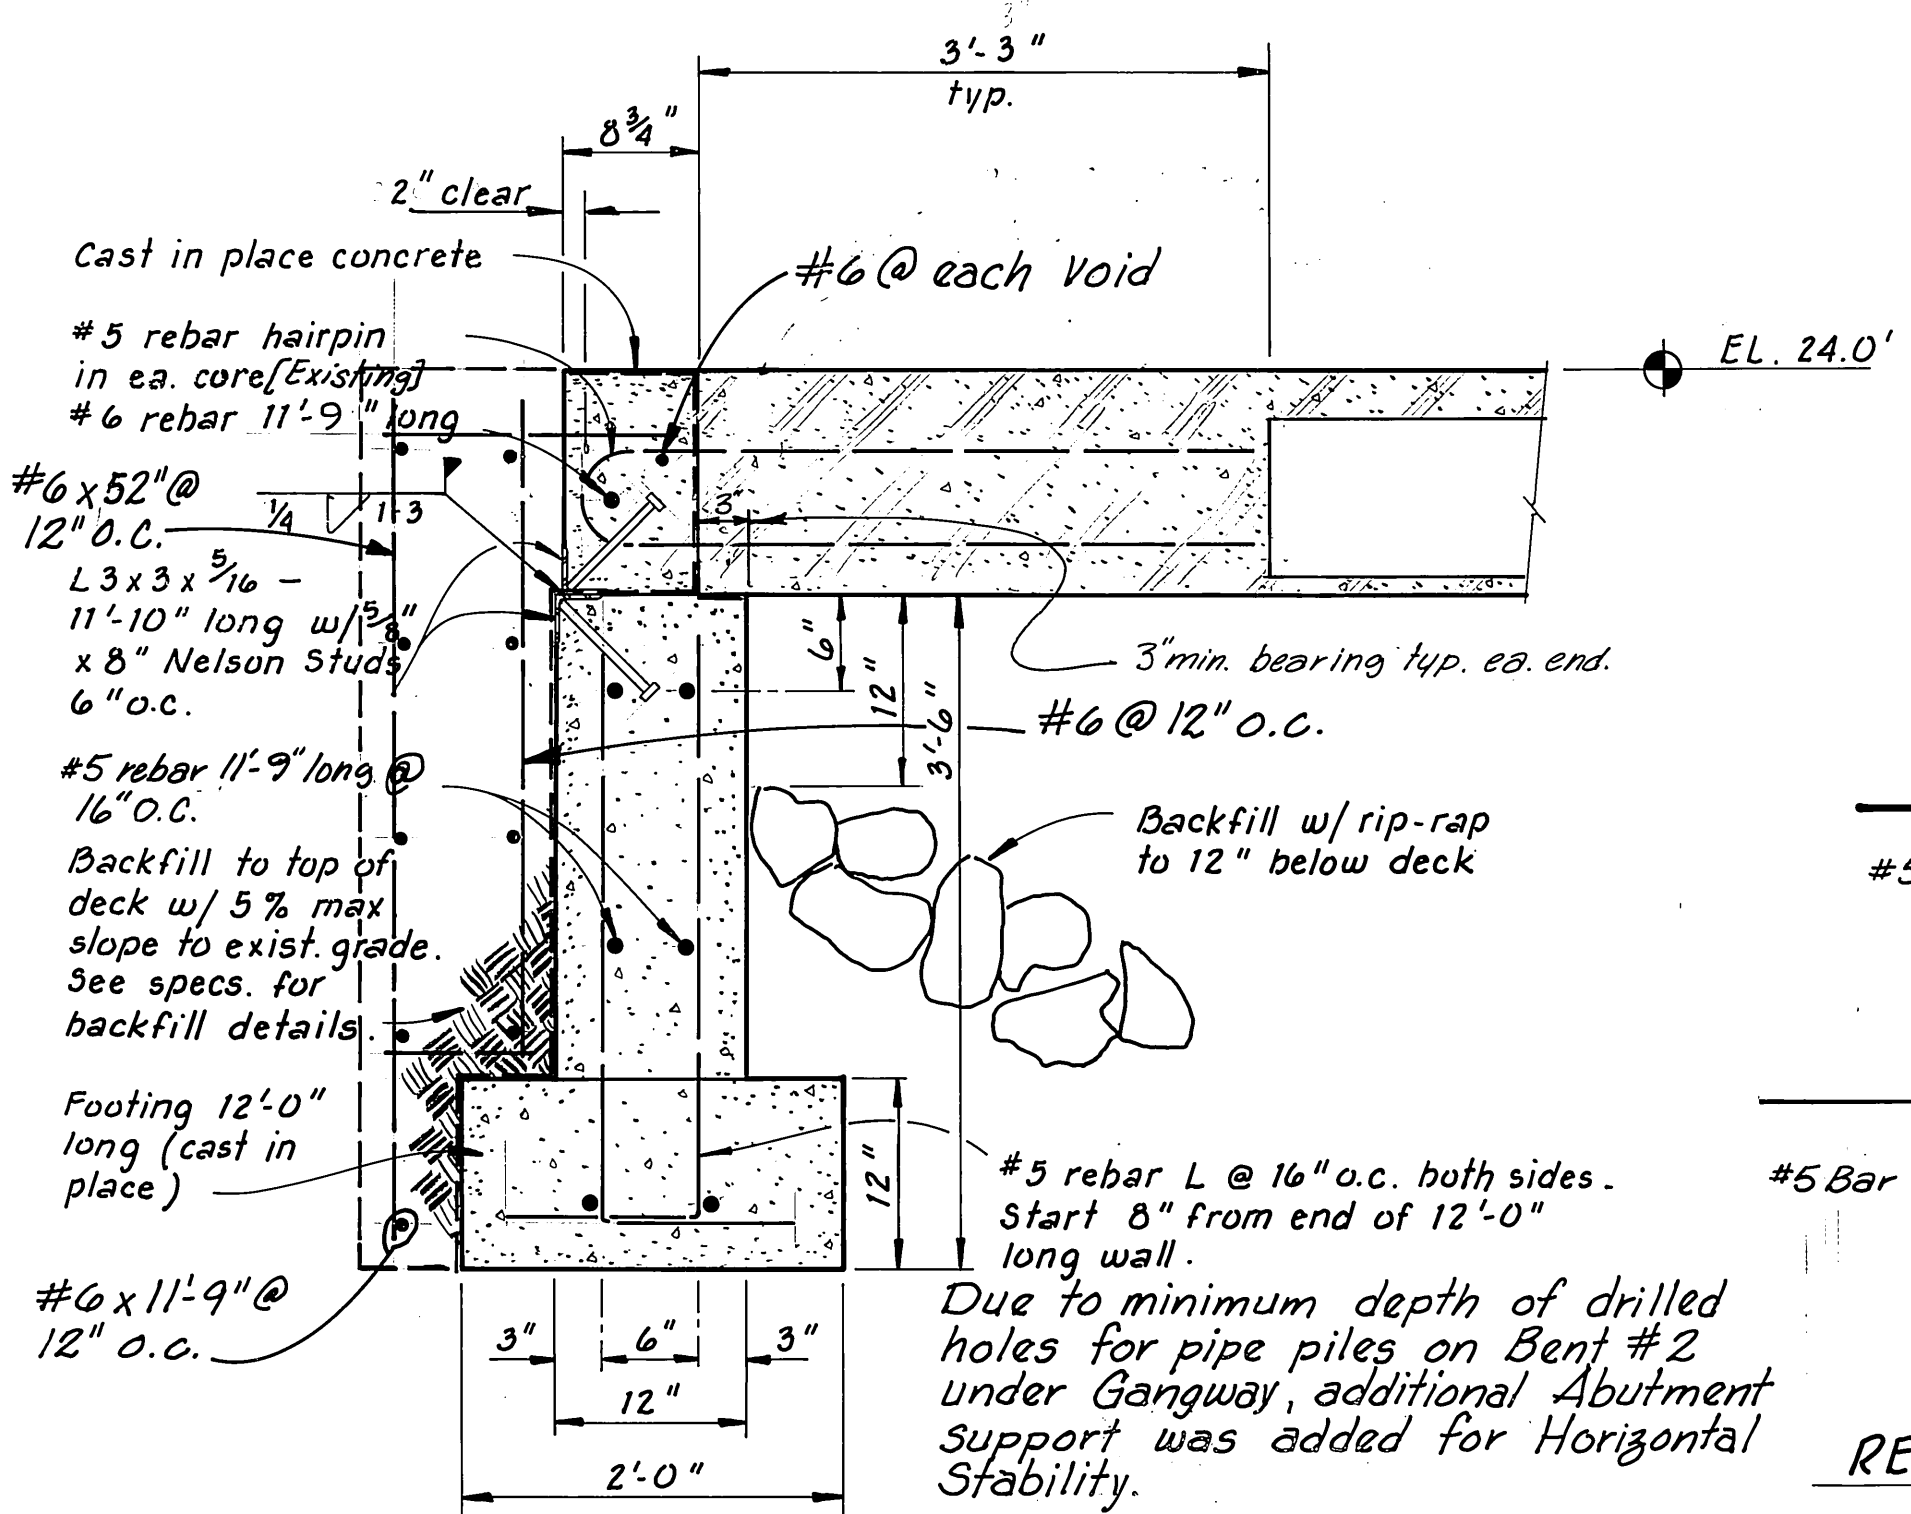 3'-3"
typ.
8 3/4"
2" clear
Cast in place concrete
#6 @ each Void
#5 rebar hairpin
in ea. core [Existing]
#6 rebar 11'-9" long
EL. 24.0'
#6 x 52" @
12" O.C.
1/4
1-3
3"
L 3 x 3 x 5/16 -
11'-10" long w/ 5/8"
x 8" Nelson Studs
6" o.c.
6"
12"
3'-6"
3" min. bearing typ. ea. end.
#6 @ 12" O.C.
#5 rebar 11'-9" long @
16" O.C.
Backfill w/ rip-rap
to 12" below deck
Backfill to top of
deck w/ 5% max
slope to exist. grade.
See specs. for
backfill details.
#5
Footing 12'-0"
long (cast in
place)
12"
#5 rebar L @ 16" o.c. both sides.
Start 8" from end of 12'-0"
long wall.
#5 Bar
#6 x 11'-9" @
12" O.C.
3"
6"
3"
12"
2'-0"
Due to minimum depth of drilled
holes for pipe piles on Bent #2
under Gangway, additional Abutment
Support was added for Horizontal
Stability.
RE